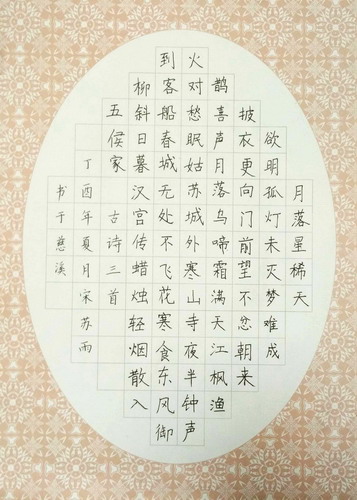 月落星稀天
欲明孤灯未灭梦难成
披衣更向门前望不忿朝来
鹊喜声月落乌啼霜满天江枫渔
火对愁眠姑苏城外寒山寺夜半钟声
到客船春城无处不飞花寒食东风御
柳斜日暮汉宫传蜡烛轻烟散入
五侯家 古诗三首
丁酉年夏月宋苏雨
书于慈溪